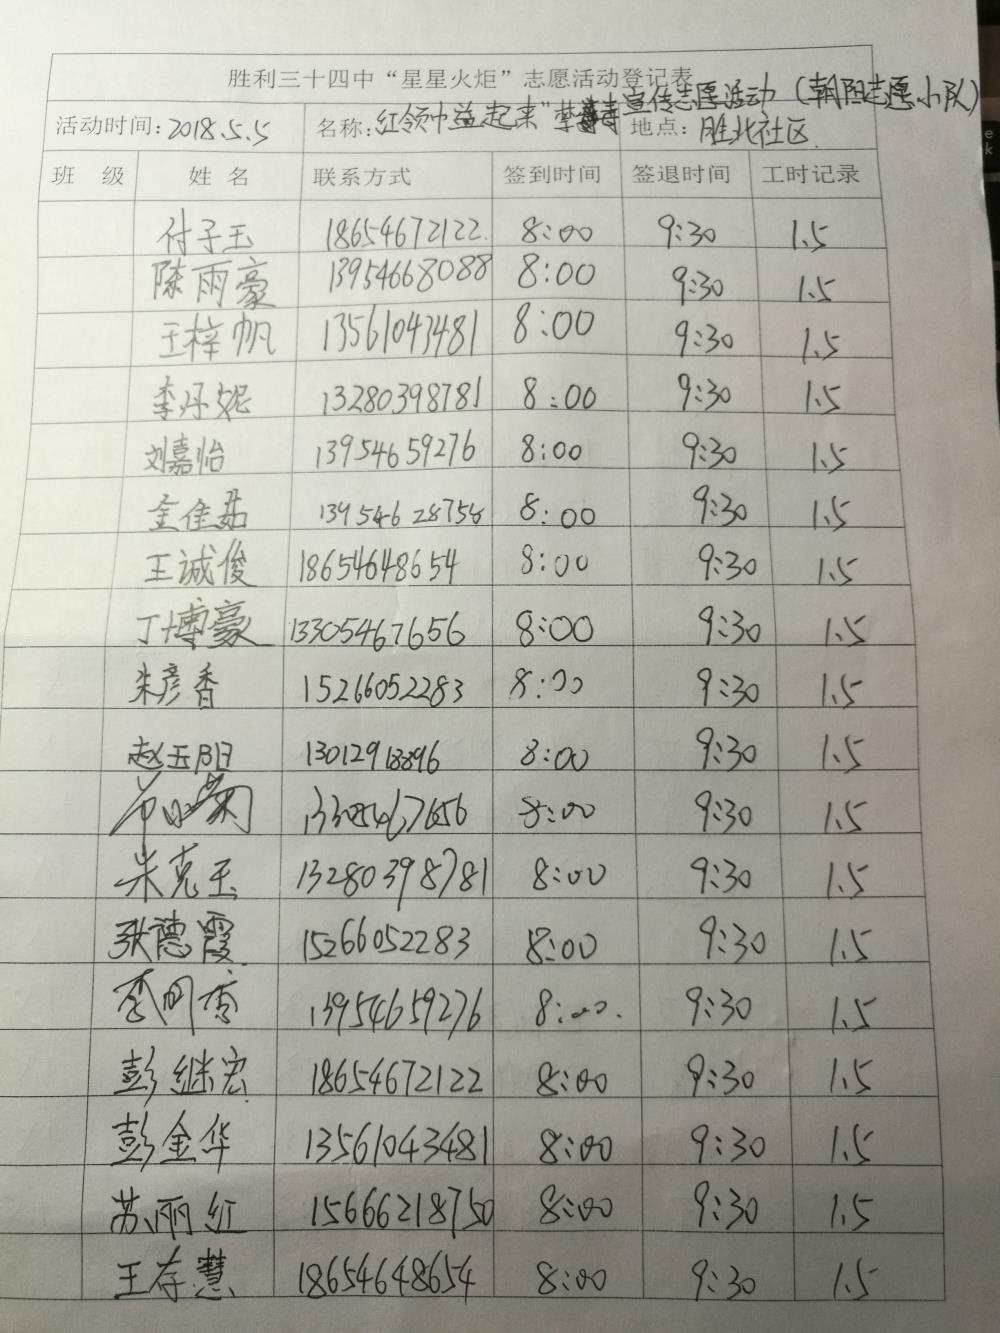 胜利三十四中“星星火炬”志愿活动登记表
活动时间：2018.5.5 名称：红领巾益起来"禁毒宣传志愿活动（朝阳志愿小队） 地点：胜北社区
班 级 姓 名 联系方式 签到时间 签退时间 工时记录
付子玉 18654672122. 8:00 9:30 1.5
陈雨豪 13954668088 8:00 9:30 1.5
王梓帆 13561043481 8:00 9:30 1.5
李丹妮 13280398781 8:00 9:30 1.5
刘嘉怡 13954659276 8:00 9:30 1.5
金佳茹 13954628758 8:00 9:30 1.5
王诚俊 18654648654 8:00 9:30 1.5
丁博豪 13305467656 8:00 9:30 1.5
朱彦香 15266052283 8:00 9:30 1.5
赵玉明 13012918896 8:00 9:30 1.5
13305467656 8:00 9:30 1.5
朱克玉 13280398781 8:00 9:30 1.5
张德霞 15266052283 8:00 9:30 1.5
李明香 13954659276 8:00. 9:30 1.5
彭继宏 18654672122 8:00 9:30 1.5
彭金华 13561043481 8:00 9:30 1.5
苏丽红 15666218750 8:00 9:30 1.5
王存慧 18654648654 8:00 9:30 1.5